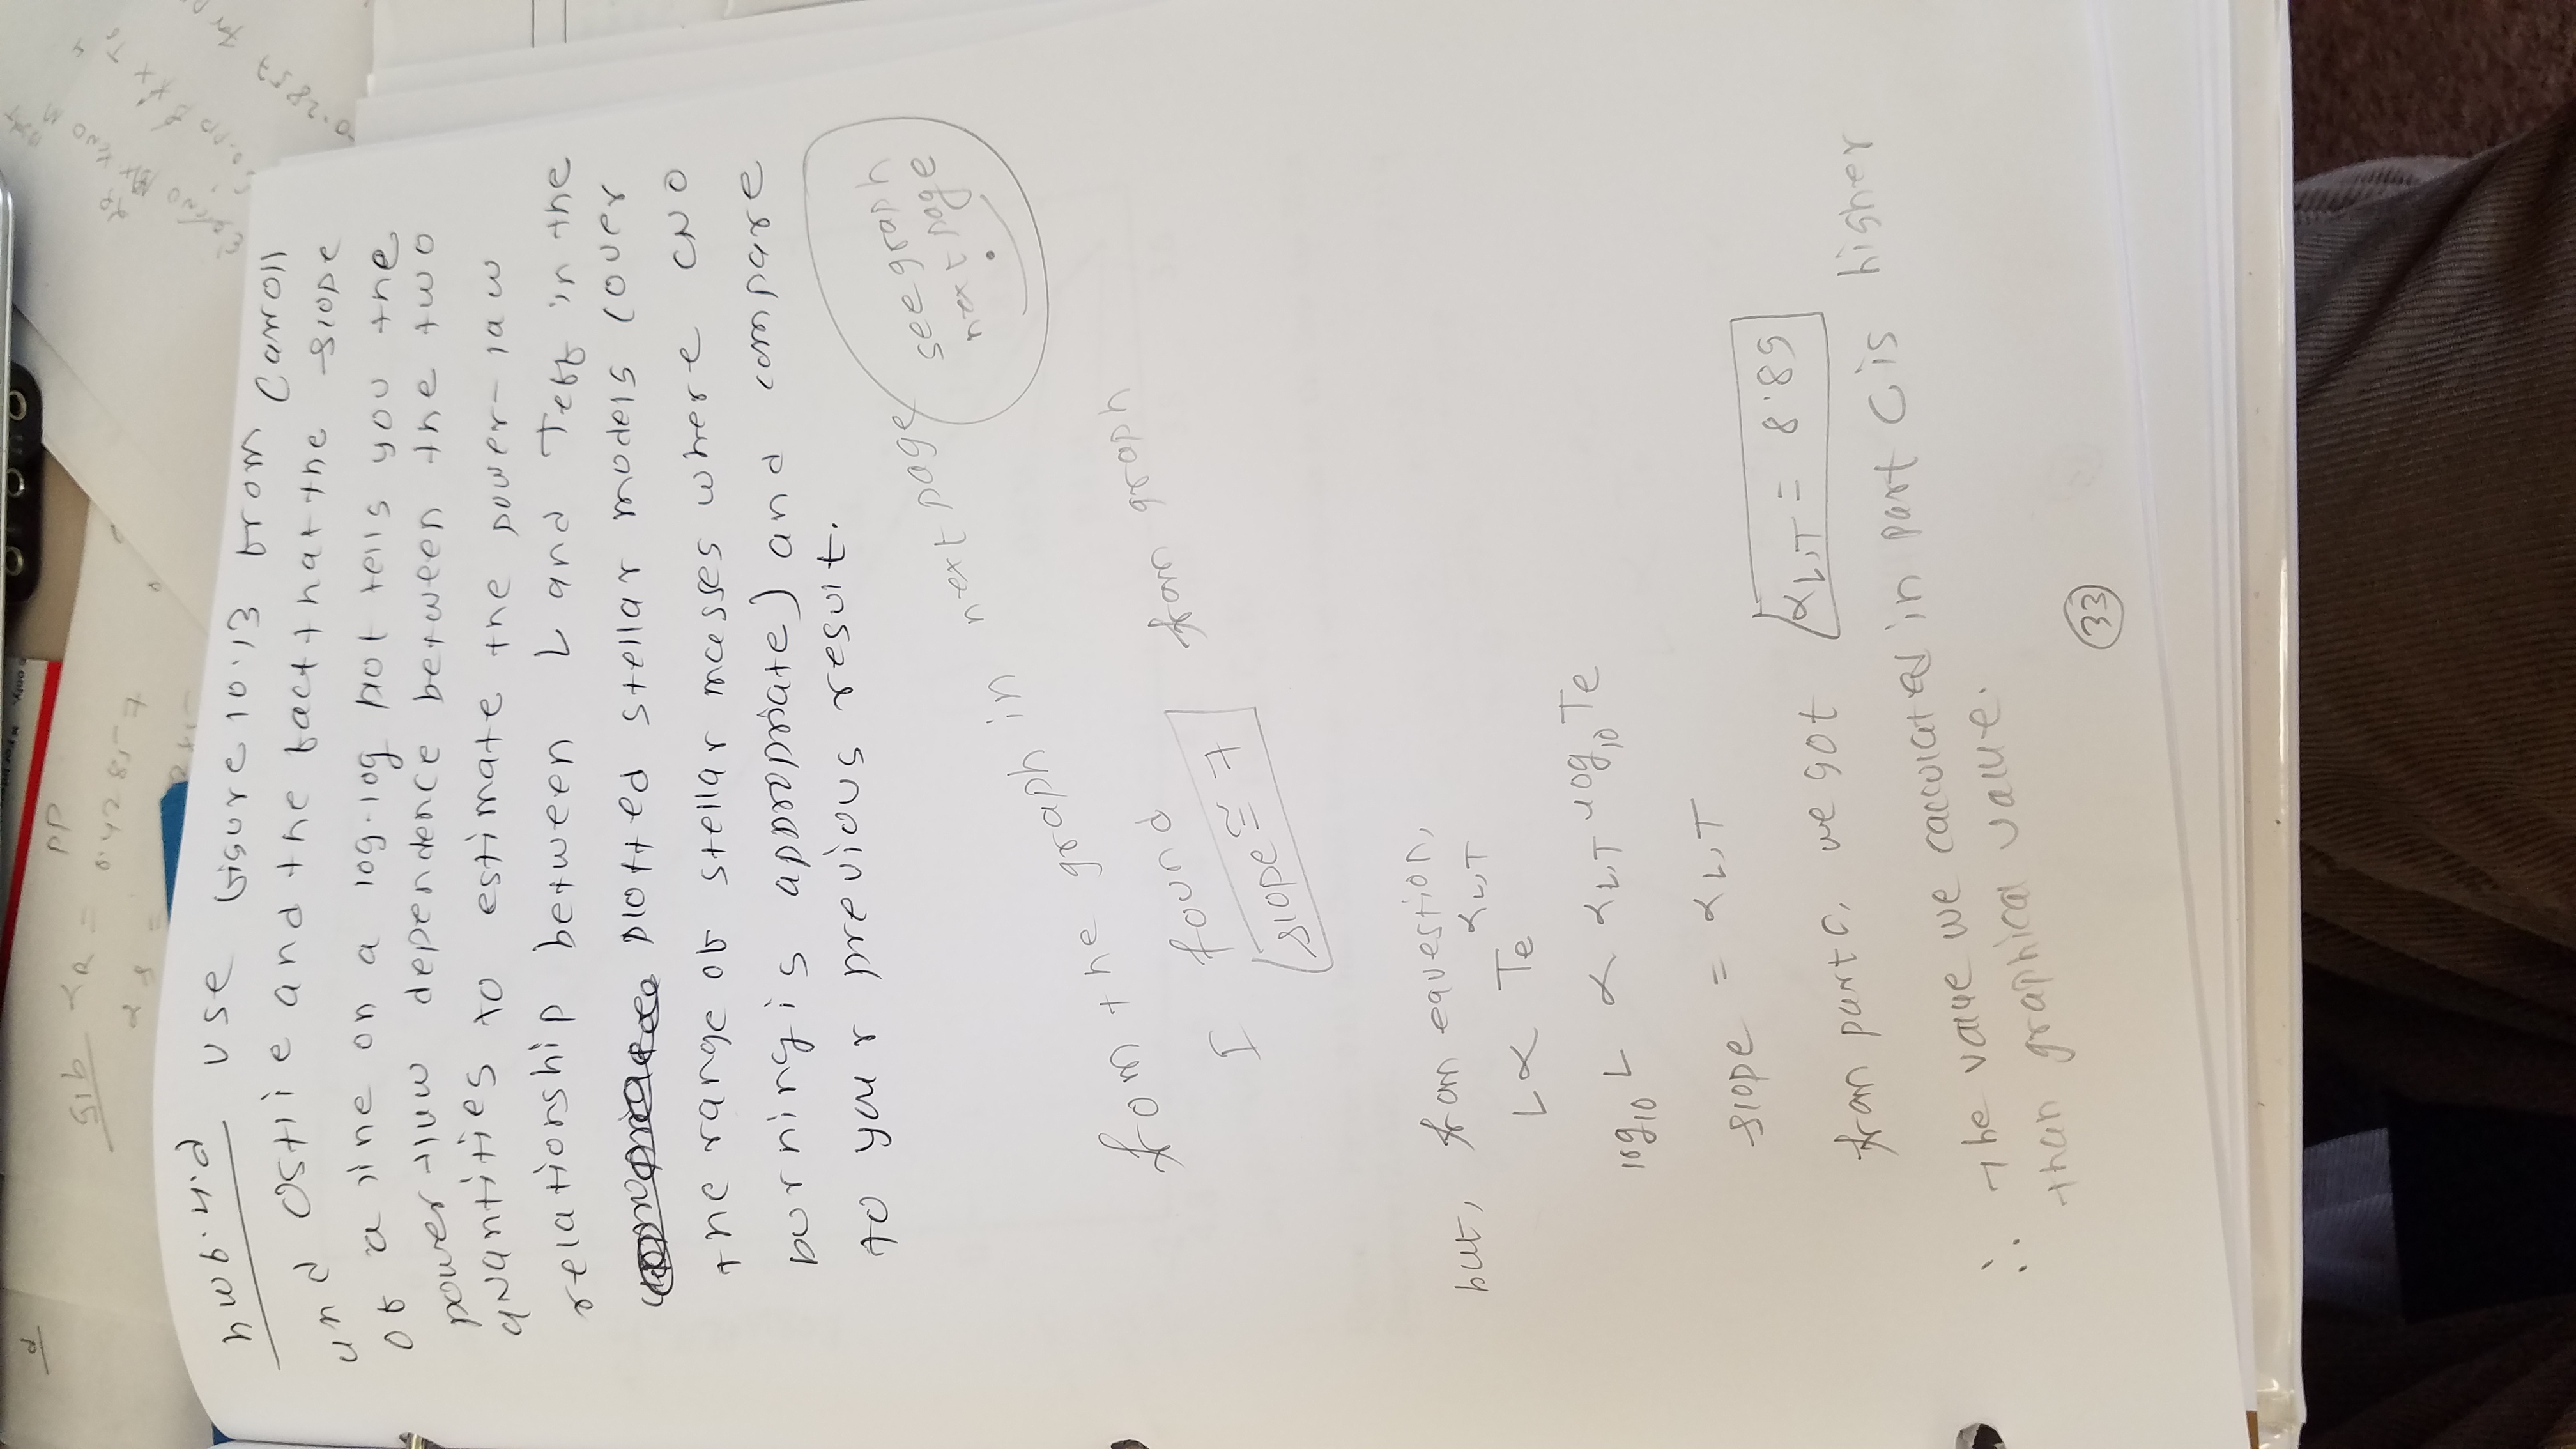 d
51b αR = PP
0.42857
αs =
hw6.4.d use figure 10.13 from Carroll
and Ostlie and the fact that the slope
of a line on a log-log plot tells you the
power law dependence between the two
quantities to estimate the power-law
relationship between L and Teff in the
plotted stellar models (over
the range of stellar masses where CNO
burning is appropriate) and compare
to your previous result.
see graph
next page
from the graph in next page
I found
slope ≅ 7 from graph
but, from equestion,
L ∝ Te^αL,T
log10 L ∝ αL,T log10 Te
slope = αL,T
from part c, we got αL,T = 8.89
∴ The value we calculated in part C is higher
than graphical value.
33
0.2857 for